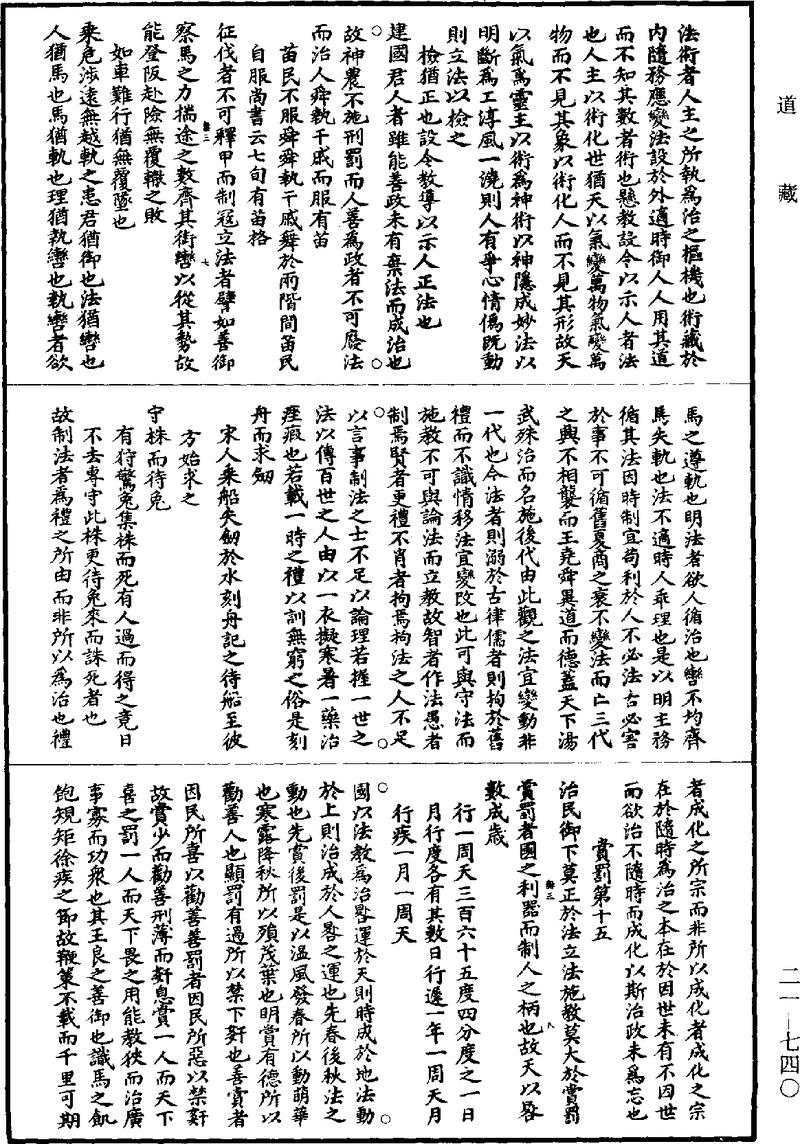 道藏
法術者人主之所執為治之樞機也術藏於
內隨務應變法設於外適時御人人用其道
而不知其數者術也懸教設令以示人者法
也人主以術化世猶天以氣變萬物氣變萬
物而不見其象以術化人而不見其形故天
以氣為靈主以術為神術以神隱成妙法以
明斷為工淳風一澆則人有爭心情偽既動
則立法以檢之
檢猶正也設令教導以示人正法也
建國君人者雖能善政未有棄法而成治也
故神農不施刑罰而人善為政者不可廢法
而治人舜執干戚而服有苗
苗民不服舜舜執干戚舜於兩階間苗民
自服尚書云七旬有苗格
征伐者不可釋甲而制寇立法者譬如善御
察馬之力揣途之數齊其銜轡以從其勢故
能登阪赴險無覆轍之敗
如車難行猶無覆墜也
乘危涉遠無越軌之患君猶御也法猶轡也
人猶馬也馬猶軌也理猶執轡也執轡者欲
馬之遵軌也明法者欲人循治也轡不均齊
馬失軌也法不適時人乖理也是以明主務
循其法因時制宜苟利於人不必法古必害
於事不可循舊夏商之衰不變法而亡三代
之興不相襲而王堯舜異道而德蓋天下湯
武殊治而名施後代由此觀之法宜變動非
一代也今法者則溺於古律儒者則拘於舊
禮而不識情移法宜變改也此可與守法而
施教不可與論法而立教故智者作法愚者
制焉賢者更禮不肖者拘焉拘法之人不足
以言事制法之士不足以論理若握一世之
法以傳百世之人由以一衣擬寒暑一藥治
痤瘕也若載一時之禮以訓無窮之俗是刻
舟而求劒
宋人乘船失劒於水刻舟記之待船至彼
方始求之
守株而待兔
有狩驚兔集株而死有人過而得之竟日
不去專守此株更待兔來而誅死者也
故制法者為禮之所由而非所以為治也禮
者成化之所宗而非所以成化者成化之宗
在於隨時為治之本在於因世未有不因世
而欲治不隨時而成化以斯治政未為忠也
賞罰第十五
治民御下莫正於法立法施教莫大於賞罰
賞罰者國之利器而制人之柄也故天以晷
數成歲
行一周天三百六十五度四分度之一日
月行度各有其數日行遲一年一周天月
行疾一月一周天
國以法教為治晷運於天則時成於地法動
於上則治成於人晷之運也先春後秋法之
動也先賞後罰是以溫風發春所以動萌華
也寒露降秋所以殞茂葉也明賞有德所以
勸善人也顯罰有過所以禁下姧也善賞者
因民所喜以勸善善罰者因民所惡以禁姧
故賞少而勸善刑薄而姧息賞一人而天下
喜之罰一人而天下畏之用能教狹而治廣
事寡而功衆也其王良之善御也識馬之飢
飽規矩徐疾之節故鞭策不載而千里可期
二一—七四〇